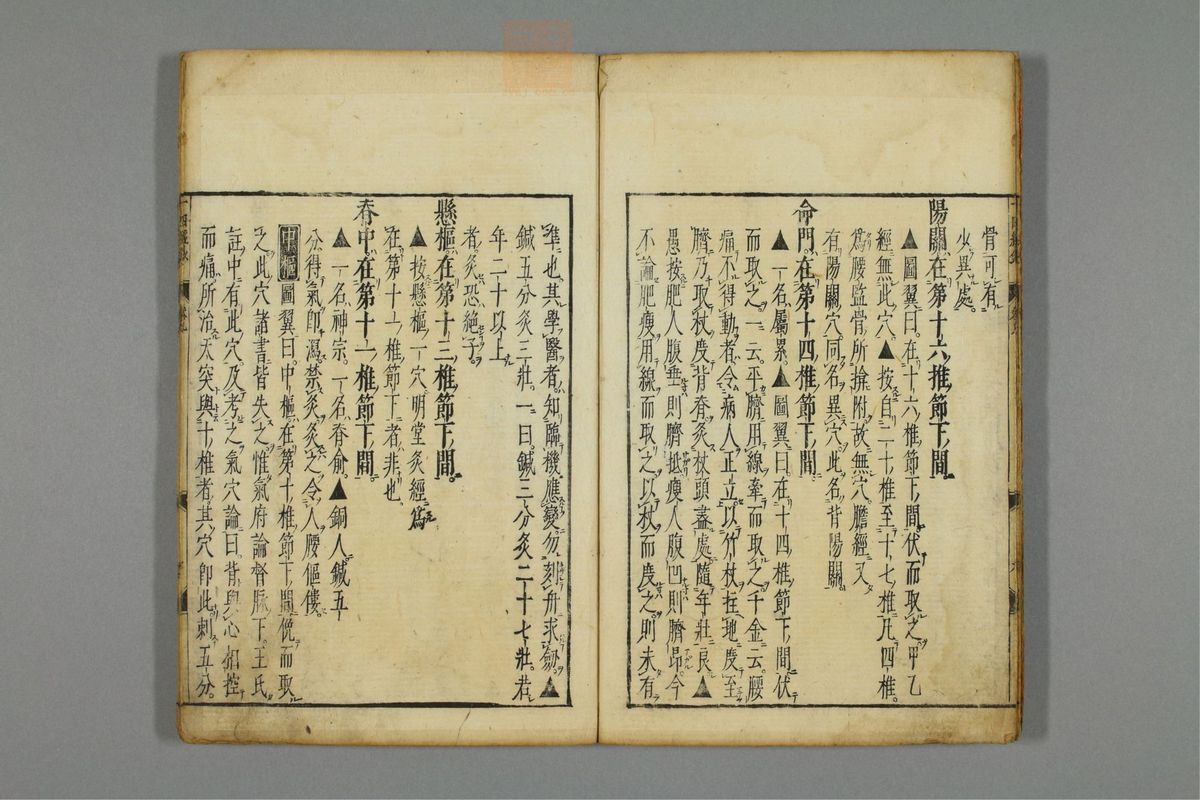 骨可有
少異處
陽關在第十六推節下間
▲圖翼曰在十六椎節下間伏而取之甲乙
經無此穴▲按自二十椎至十七椎凡四椎
爲腰監骨所揜附故無穴膽經又
有陽關穴同名異穴此名背陽關
命門在第十四椎節下間
▲一名屬累▲圖翼曰在十四椎節下間伏
而取之一云平臍用線牽而取之千金云腰
痛不得動者令病人正立以竹杖拄地度至
臍乃取杖度背脊灸杖頭盡處隨年壯良▲
愚按肥人腹垂則臍抵瘦人腹凹則臍昂今
不論肥瘦用線而取之以杖而度之則未有
準也其學醫者知臨機應變勿刻舟求劔▲
鍼五分灸三壯一曰鍼三分灸二十七壯若
年二十以上
者灸恐絶子
懸樞在第十三椎節下間
▲按懸樞一穴明堂灸經爲
在第十一椎節下者非也
脊中在第十一椎節下間
▲一名神宗一名脊俞▲銅人鍼五
分得氣卽瀉禁灸灸之令人腰傴僂
中樞圖翼曰中樞在第十椎節下間俛而取
之此穴諸書皆失之惟氣府論督脉下王氏
註中有此穴及考之氣穴論曰背與心相控
而痛所治天突與十椎者其穴卽此刺五分